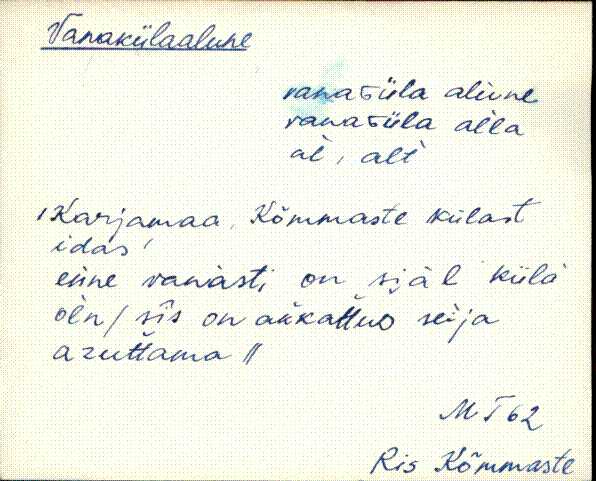 Vanakülaalune
vanaᴦüla aliune
vanaᴦüla alla
al, alt
'Karjamaa, Kõmmaste külast
idas'
enne vanasti on själ külä
oln / siis on akattud seija
azuttama //
MT 62
Ris Kõmmaste